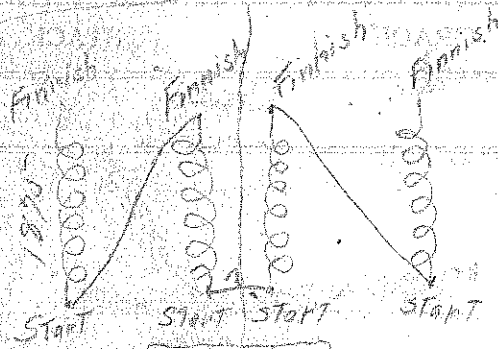 Finnish Finnish Finnish Finnish
1875
1
Start Start Start Start